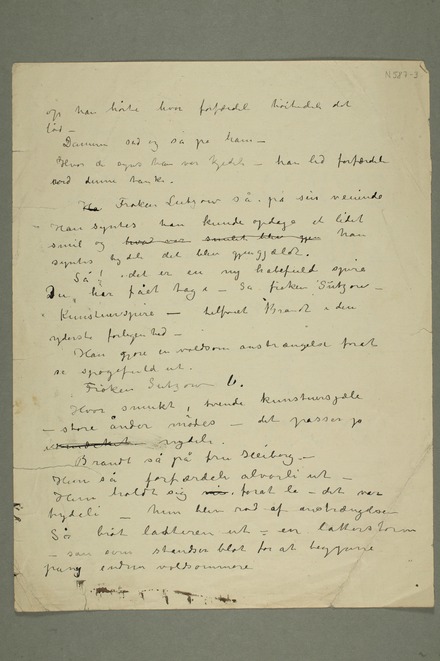 N 587-3
og han hörte hvor forfærdel höitidel det
lød –
Damen sad og så på ham –
Hvor de syns han var kjedel – han led forfærdel
ved denne tanke.
Ha Fröken Lutzow så på sin veninde
Han syntes han kunde opdage et lidet
smil og hvad var smilet blev han
syntes tydel det blev gjengjældt.
Så! det er en ny håbefuld spire
Du har fået tag i – Sa fröken Lutzow –
Kunstnerspire – Brandt i den
yderste forlegenhed –
Han gjore en voldsom anstrængelse forat
se spøgefuld ut.
Fröken Lutzow
Hvor smukt, tvende kunstnersjæle
– store ånder mödes – det passer jo
nydeli.
Brandt så på fru Heiberg –
Hun så forfærdeli alvorli ut –
Hun holdt sig forat le – det var
tydeli – hun blev rød af anstrængelse
Så bröt latteren ut – en latterstorm
– som som standser blot for at begynne
igang endnu voldsommere